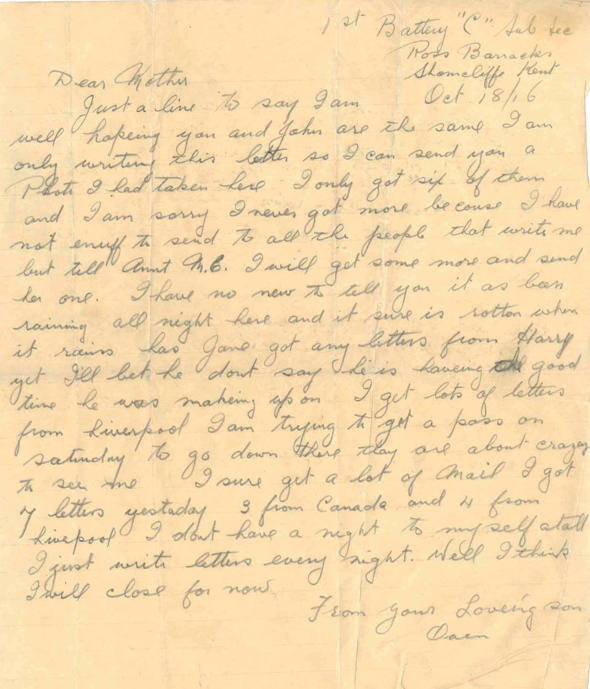 1st Battery "C" Sub Sec
Ross Barracks
Shorncliffe Kent
Oct 18/16
Dear Mother
Just a line to say I am
well hopeing you and John are the same I am
only writing this letter so I can send you a
Photo I had taken here I only got six of them
and I am sorry I never got more because I have
not enuff to send to all the people that write me
but tell Aunt M.E. I will get some more and send
her one. I have no new to tell you it as been
raining all night here and it sure is rotton when
it rains has Jane got any letters from Harry
yet I'll bet he dont say he is haveing the good
time he was makeing up on I get lots of letters
from Liverpool I am trying to get a pass on
saturday to go down there they are about crazey
to see me I sure get a lot of Mail I got
7 letters yestaday 3 from Canada and 4 from
Liverpool I dont have a night to my self atall
I just write letters every night. Well I think
I will close for now
From your Loveing son
Owen